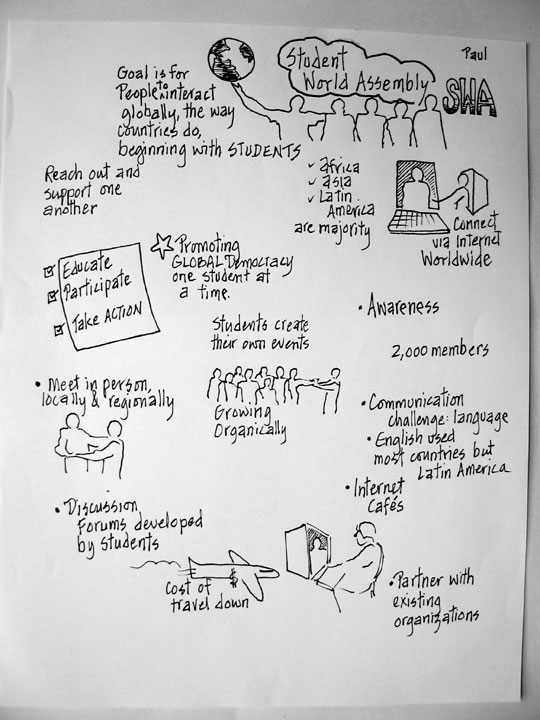 Paul
Student
World Assembly
SWA
Goal is for
People to interact
globally, the way
countries do,
beginning with STUDENTS
Reach out and
support one
another
✓ africa
✓ asia
✓ Latin
America
are majority
Connect
via Internet
Worldwide
Educate
Participate
Take ACTION
Promoting
GLOBAL Democracy
one student at
a time.
Students create
their own events
• Awareness
2,000 members
• Meet in person,
locally & regionally
Growing
Organically
• Communication
challenge: language
• English used
most countries but
Latin America
• Internet
Cafés
• Discussion
Forums developed
by students
$
Cost of
travel down
• Partner with
existing
organizations